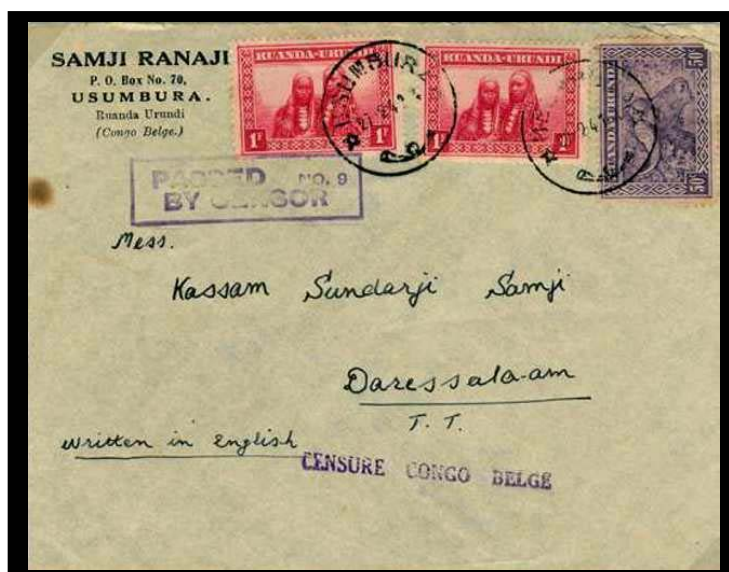 SAMJI RANAJI
P. O. Box No. 70,
USUMBURA.
Ruanda Urundi
(Congo Belge.)
RUANDA-URUNDI
1F 1F
RUANDA-URUNDI
1F 1F
RUANDA-URUNDI
50c 50c
USUMBURA
PASSED NO. 9
BY CENSOR
Mess.
Kassam Sundarji Samji
Daressala-am
T. T.
Written in English
CENSURE CONGO BELGE